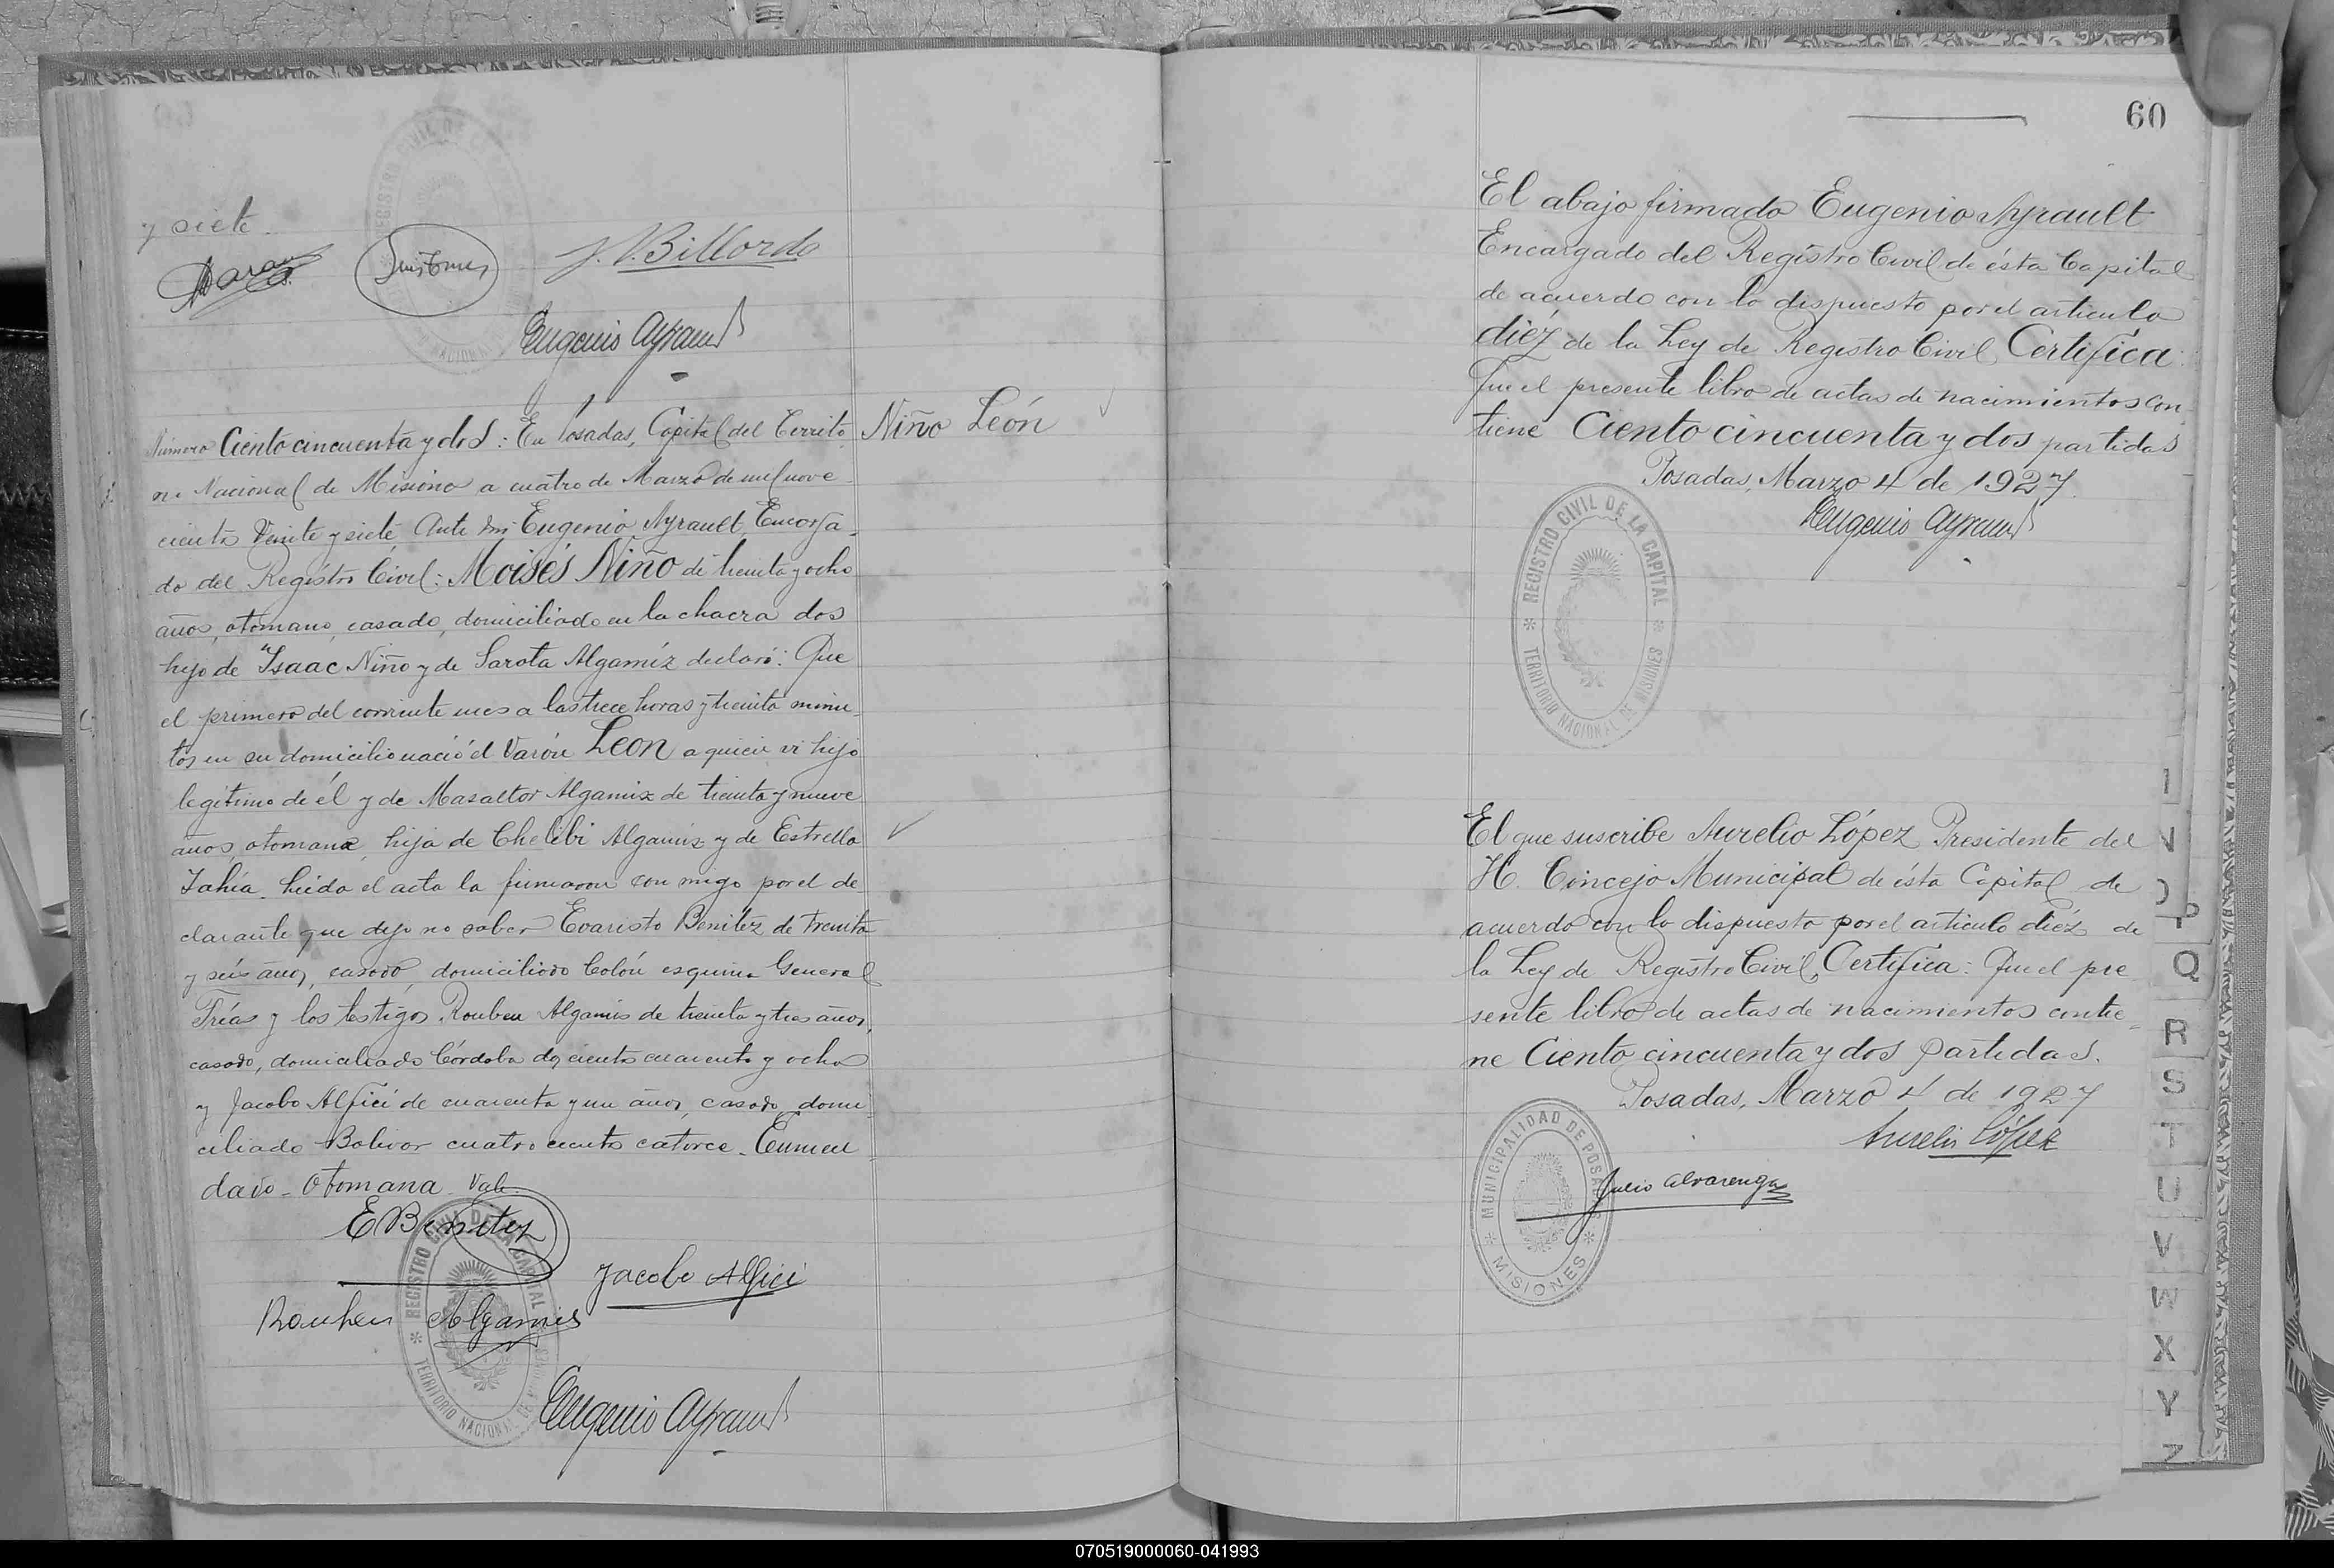 y siete.
J. V. Billordo
Eugenio Ayrault
Niño León
Número Ciento cincuenta y dos: En Posadas, Capital del Territo
rio Nacional de Misiones a cuatro de Marzo de mil nove
cientos Veinte y siete Ante mi Eugenio Ayrault, Encarga-
do del Registro Civil: Moisés Niño de treinta y ocho
años, otomano, casado, domiciliado en la chacra dos
hijo de Isaac Niño y de Sarota Algamíz declaró: Que
el primero del corriente mes a las trece horas y treinta minu-
tos en su domicilio nació el Varón Leon a quien vi hijo
legítimo de él y de Masaltor Algamix de treinta y nueve
años, otomana, hija de Chelibi Algamis y de Estrella
Jahía. Leída el acta la firmaron con migo por el de
clarante que dijo no saber Evaristo Benitez de treinta
y seis años, casado, domiciliado Colón esquina General
Frías y los testigos Rouben Algamis de treinta y tres años,
casado, domiciliado Córdoba doscientos cuarenta y ocho
y Jacobo Alfici de cuarenta y un años, casado, domi
ciliado Bolivar cuatrocientos catorce. Enmen
dado - Otomana. Vale.
E Benitez
Jacobo Alfici
Rouben Algamis
Eugenio Ayrault
REGISTRO CIVIL DE LA CAPITAL
TERRITORIO NACIONAL DE MISIONES
60
El abajo firmado Eugenio Ayrault
Encargado del Registro Civil de ésta Capital
de acuerdo con lo dispuesto por el articulo
diéz de la Ley de Registro Civil, Certifica:
Que el presente libro de actas de nacimientos con
tiene Ciento cincuenta y dos partidas
Posadas, Marzo 4 de 1927.
Eugenio Ayrault
REGISTRO CIVIL DE LA CAPITAL
TERRITORIO NACIONAL DE MISIONES
El que suscribe Aurelio López Presidente del
H. Concejo Municipal de ésta Capital de
acuerdo con lo dispuesto por el articulo diéz de
la Ley de Registro Civil, Certifica: Que el pre
sente libro de actas de nacimientos contie-
ne Ciento cincuenta y dos partidas.
Posadas, Marzo 4 de 1927
Aurelio López
Julio Alvarenga
MUNICIPALIDAD DE POSADAS
MISIONES
P
Q
R
S
T
U
V
W
X
Y
Z
070519000060-041993